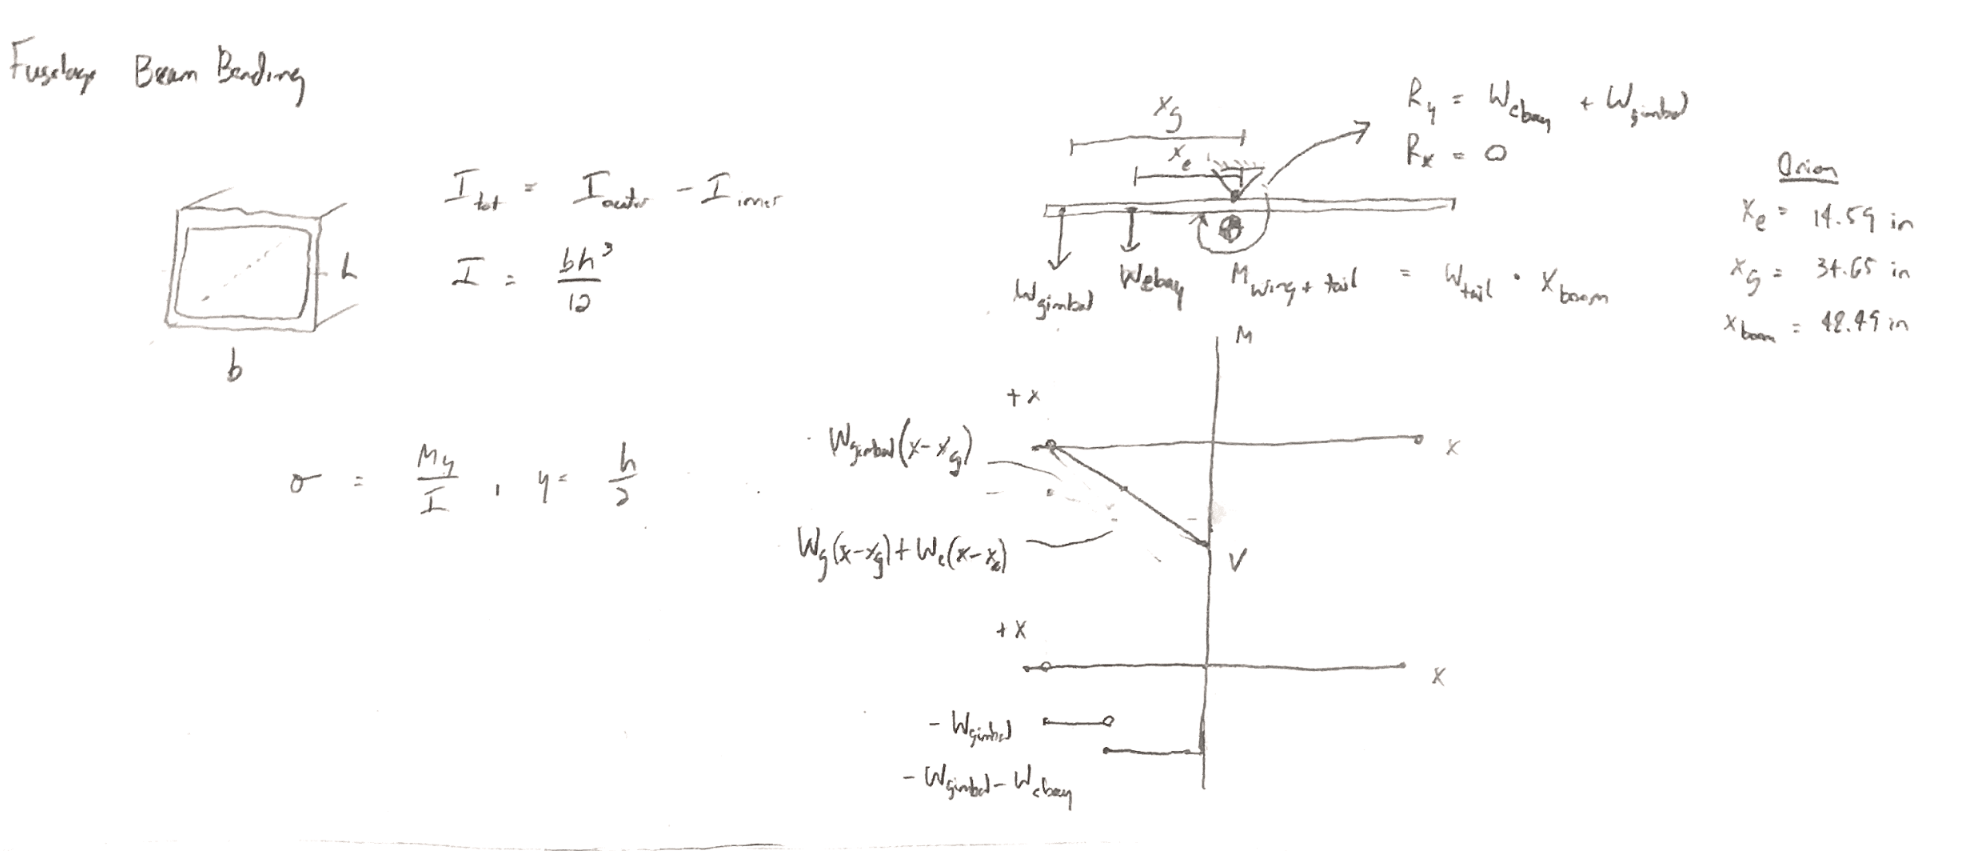 Fuselage Beam Bending
I tot = I outer - I inner
I = bh³/12
h
b
σ = My/I , y = h/2
x g
x e
R y = W ebay + W gimbal
R x = 0
W gimbal
W ebay
M wing + tail = W tail · x boom
Orion
x e = 14.59 in
x g = 34.65 in
x boom = 42.49 in
M
+x
x
W gimbal (x-x g)
W g (x-x g) + W e (x-x e)
V
+x
x
- W gimbal
- W gimbal - W ebay